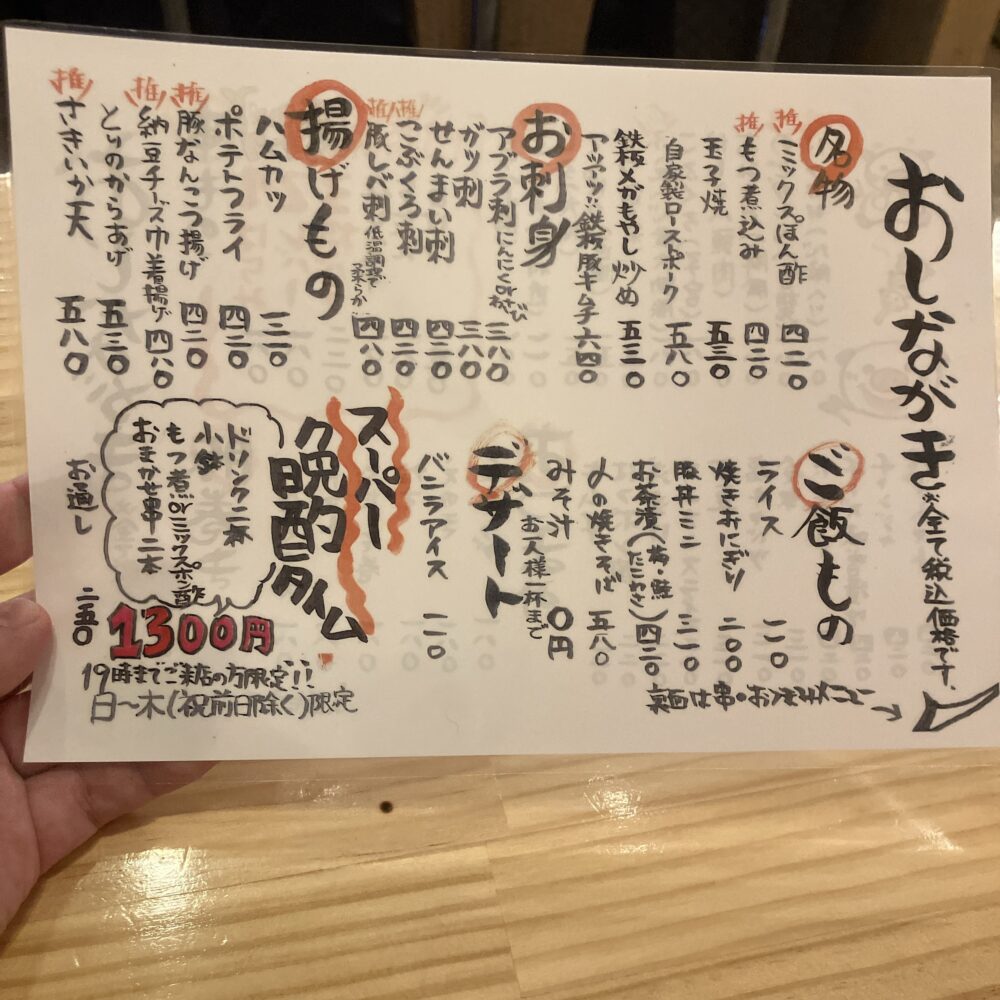 おしながき ※全て税込価格です。
名物
推 ミックスぽん酢 四二〇
推 もつ煮込み 四二〇
玉子焼 五三〇
自家製ローストポーク 五八〇
鉄板メガもやし炒め 五三〇
アツアツ!!鉄板豚キムチ 六四〇
お刺身
アブラ刺 にんにくorわさび 三八〇
ガツ刺 三八〇
せんまい刺 四二〇
推 こぶくろ刺 四二〇
推 豚レバ刺 低温調理で柔らか 四八〇
揚げもの
ハムカツ 三二〇
ポテトフライ 四二〇
推 豚なんこつ揚げ 四二〇
推 納豆チーズ巾着揚げ 四八〇
とりのからあげ 五三〇
推 さきいか天 五八〇
ご飯もの
ライス 二一〇
焼きおにぎり 二〇〇
豚丼ミニ 三二〇
お茶漬(梅・鮭 たこわさ) 四二〇
〆の焼きそば 五八〇
みそ汁 お一人様一杯まで 〇円
デザート
バニラアイス 二一〇
スーパー
晩酌タイム
ドリンク二杯
小鉢
もつ煮orミックスポン酢
おまかせ串 二本
1300円
19時までご来店の方限定!!
日〜木(祝前日除く)限定
お通し 二五〇
裏面は串・おつまみメニュー→